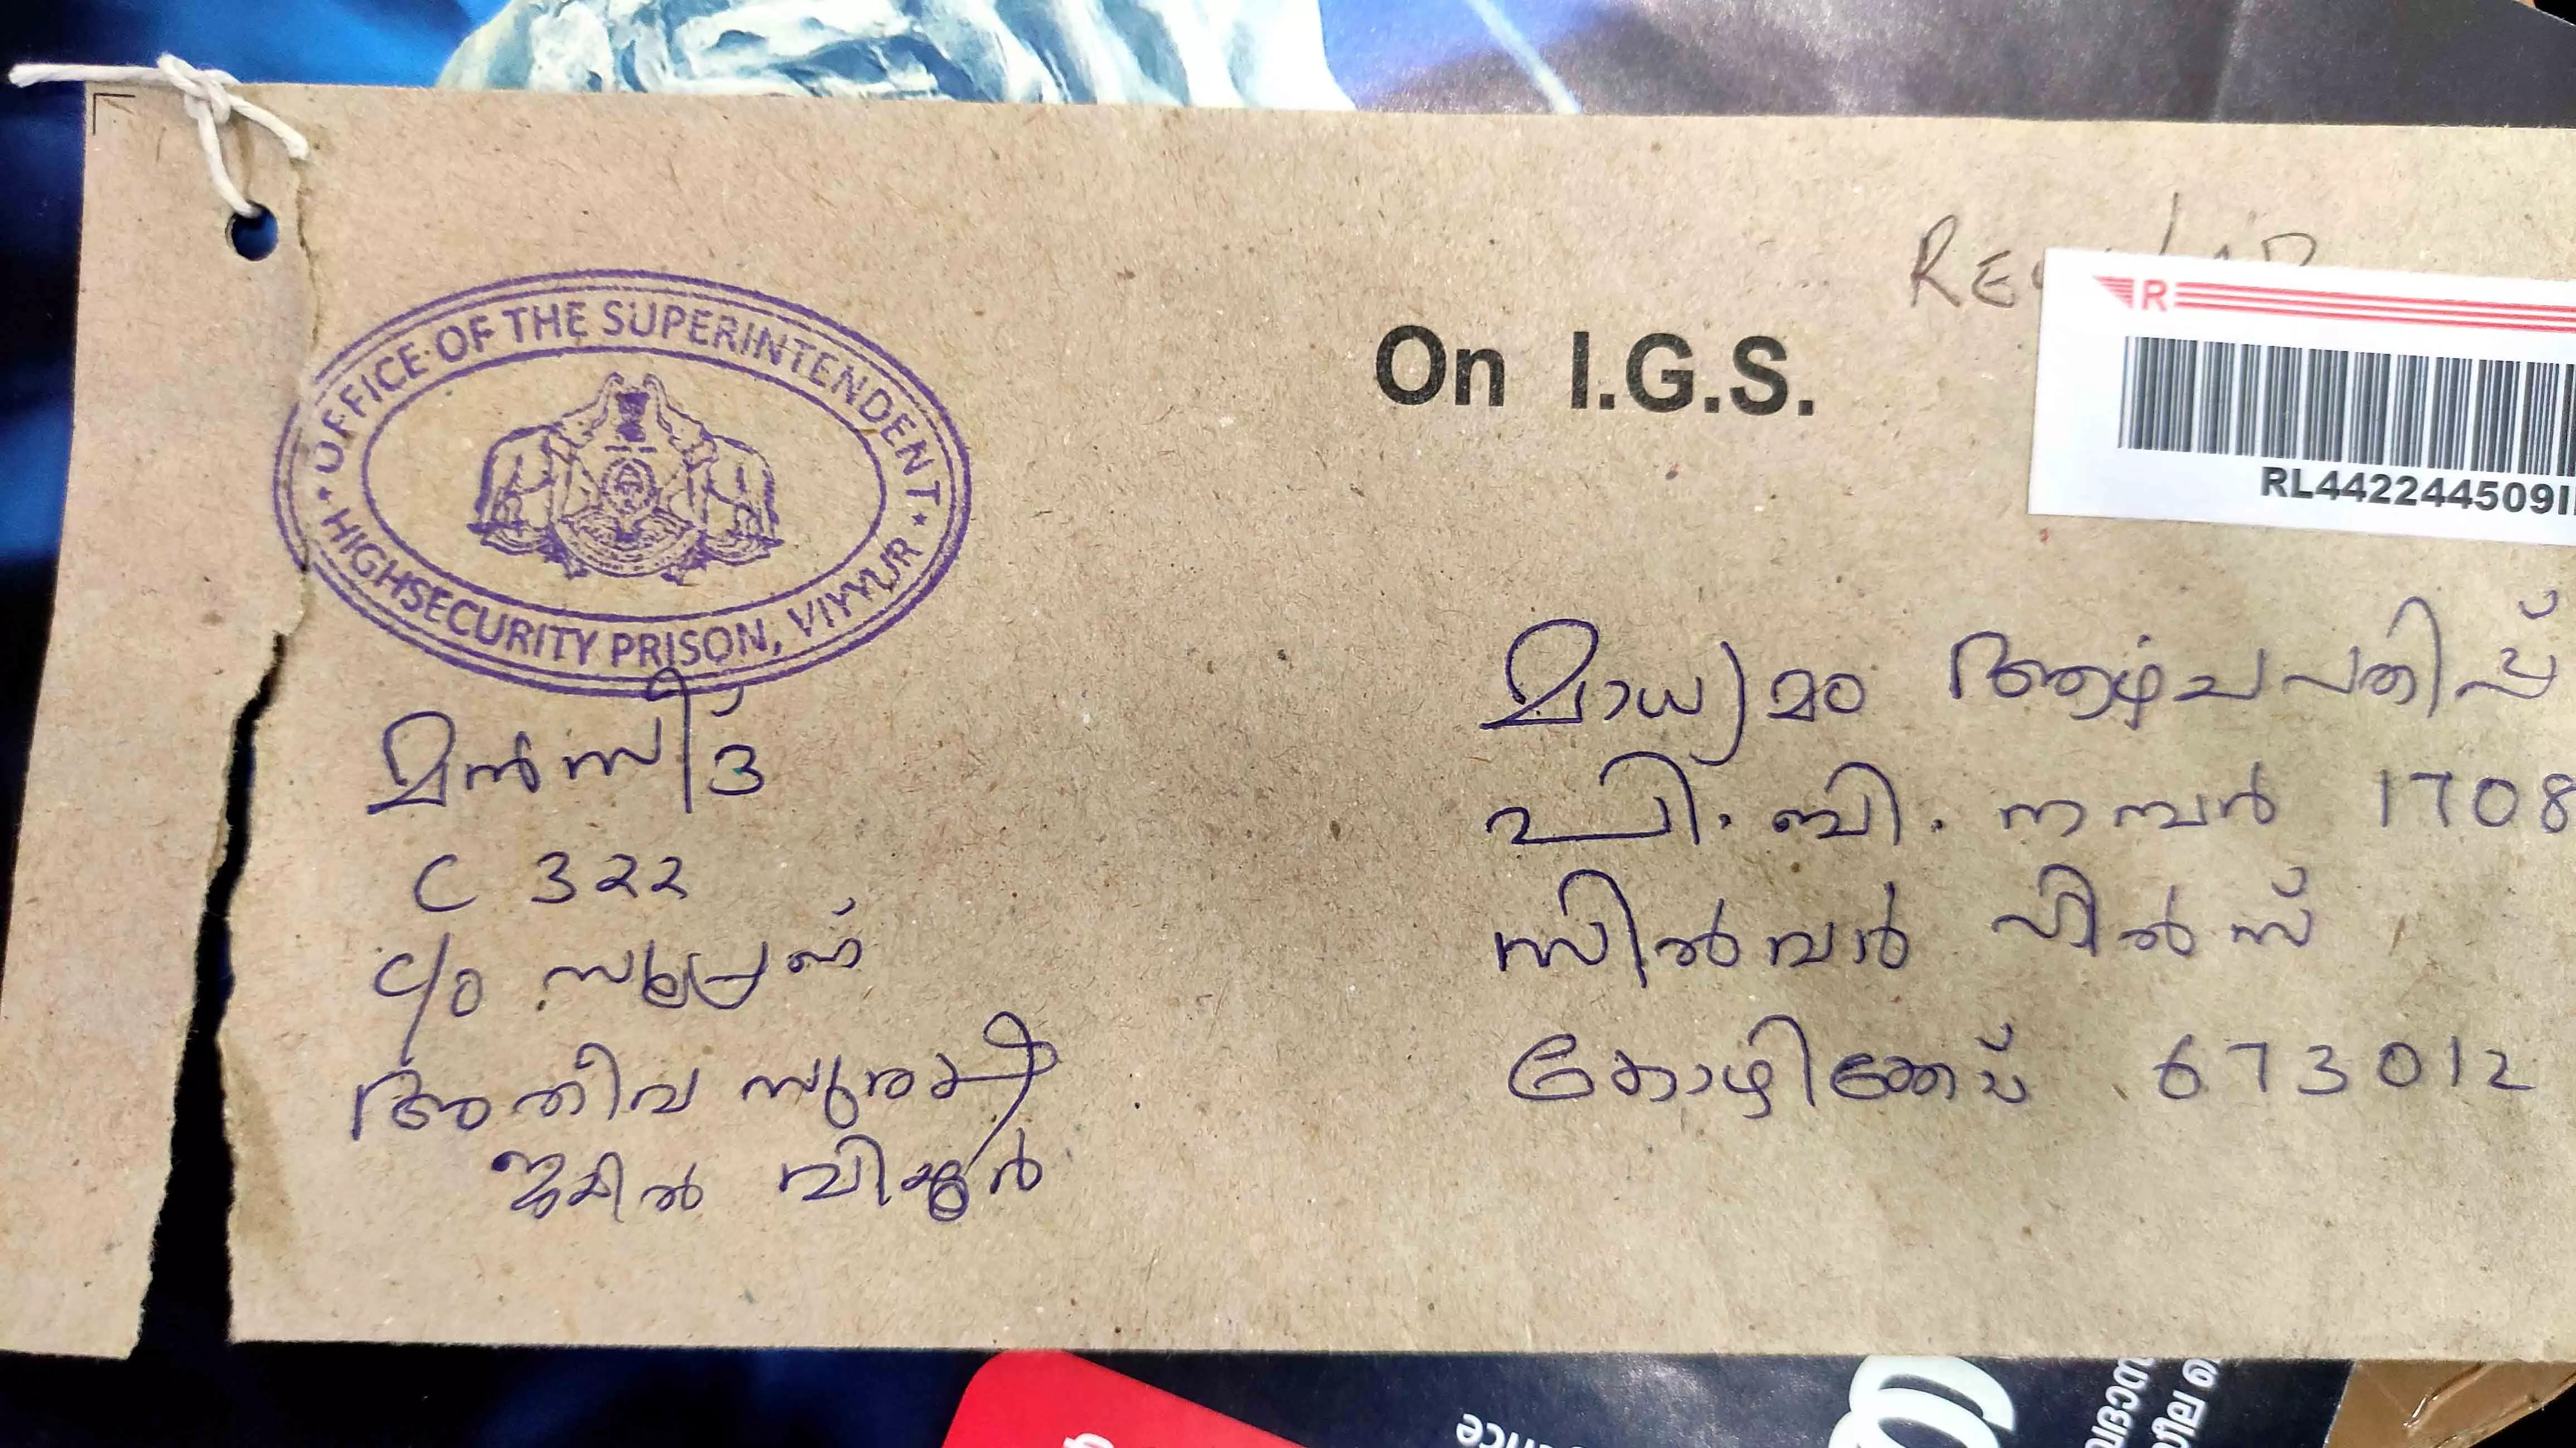 OFFICE OF THE SUPERINTENDENT
HIGHSECURITY PRISON, VIYYUR
On I.G.S.
R
RL442244509I
മാധ്യമം ആഴ്ചപതിപ്പ്
പി. ബി. നമ്പർ 1708
സിൽവർ ഹിൽസ്
കോഴിക്കോട് 673012
മൻസീദ്
C 322
C/O സൂപ്രണ്ട്
അതീവ സുരക്ഷ
ജയിൽ വിയ്യൂർ